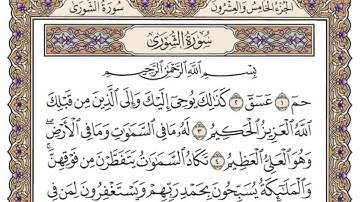 الجزء الخامس والعشرون سورة الشورى
سُورَةُ الشُّورَىٰ
بِسْمِ اللَّهِ الرَّحْمَٰنِ الرَّحِيمِ
حمٓ ١ عٓسٓقٓ ٢ كَذَٰلِكَ يُوحِىٓ إِلَيْكَ وَإِلَى ٱلَّذِينَ مِن قَبْلِكَ
ٱللَّهُ ٱلْعَزِيزُ ٱلْحَكِيمُ ٣ لَهُۥ مَا فِى ٱلسَّمَٰوَٰتِ وَمَا فِى ٱلْأَرْضِ ۖ
وَهُوَ ٱلْعَلِىُّ ٱلْعَظِيمُ ٤ تَكَادُ ٱلسَّمَٰوَٰتُ يَتَفَطَّرْنَ مِن فَوْقِهِنَّ ۚ
وَٱلْمَلَٰٓئِكَةُ يُسَبِّحُونَ بِحَمْدِ رَبِّهِمْ وَيَسْتَغْفِرُونَ لِمَن فِى